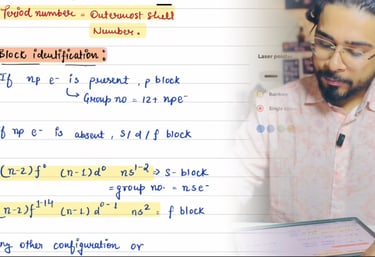 Period number = Outermost shell
Number.
Block identification:
If np e⁻ is present, p block
↳ Group no = 12 + npe⁻
If np e⁻ is absent, s/d/f block
(n-2)f⁰ (n-1)d⁰ ns¹⁻² ⇒ s-block
= group no. = nse⁻
(n-2)f¹⁻¹⁴ (n-1)d⁰⁻¹ ns² = f block
any other configuration or
Laser pointer